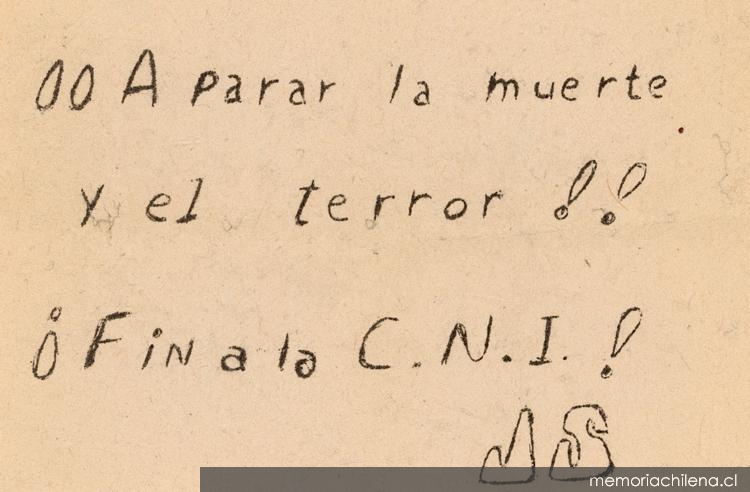 ¡¡A parar la muerte
y el terror!!
¡Fin a la C.N.I.!
JS
memoriachilena.cl